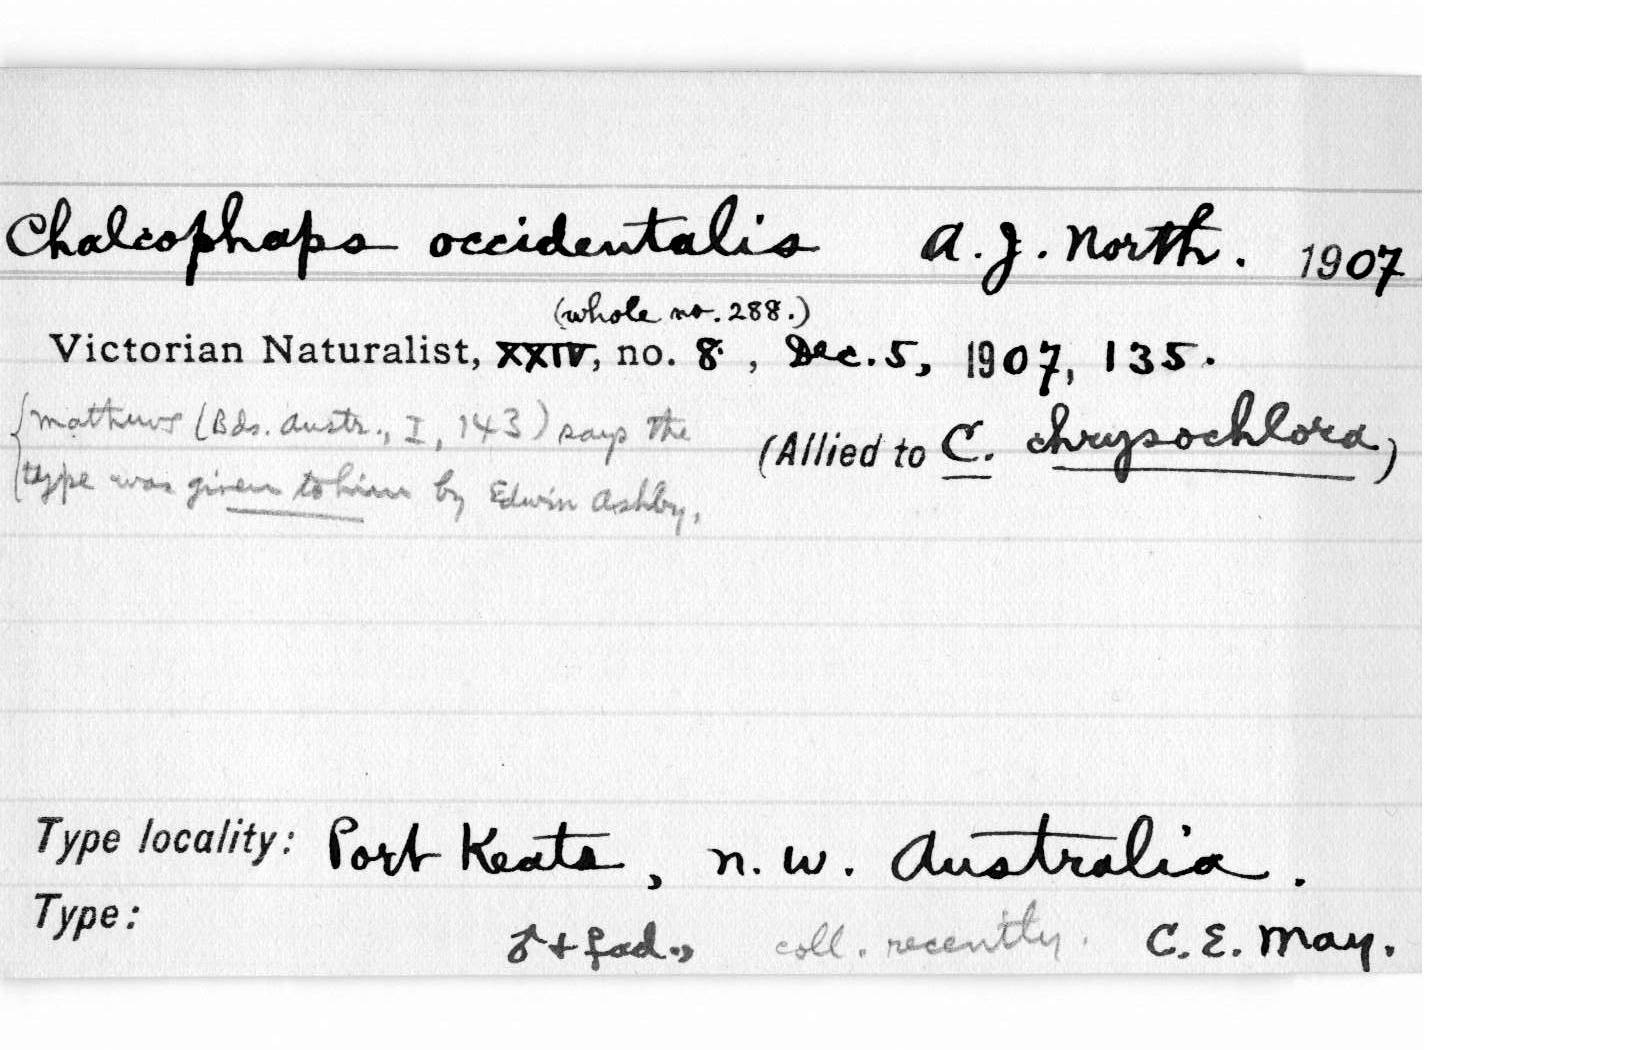 Chalcophaps occidentalis A. J. North. 1907
(whole no. 288.)
Victorian Naturalist, XXIV, no. 8, Dec. 5, 1907, 135.
{Mathews (Bds. Austr., I, 143) says the
type was given to him by Edwin Ashby,
(Allied to C. chrysochlora)
Type locality: Port Keats, n. w. Australia.
Type:
♂ + ♀ ad., coll. recently. C. E. May.